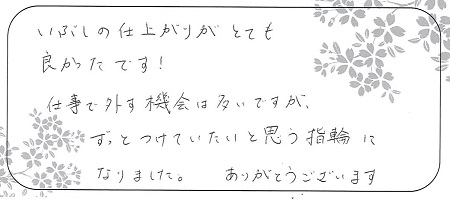 いぶしの仕上がりがとても
良かったです!
仕事で外す機会は多いですが、
ずっとつけていたいと思う指輪に
なりました。 ありがとうございます